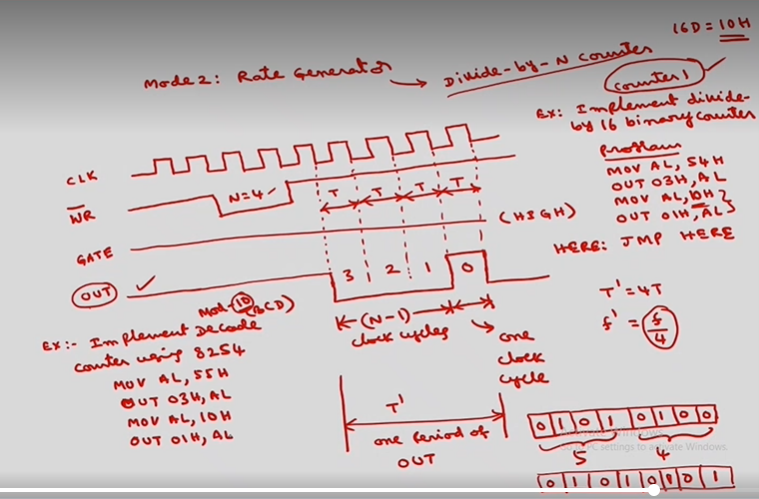 16D = 10H
Mode 2: Rate Generator → Divide-by-N Counter
Counter 1
Ex: Implement divide-
by 16 binary counter
Program
MOV AL, 54H
OUT 03H, AL
MOV AL, 10H
OUT 01H, AL
HERE: JMP HERE
CLK
WR
N=4
T T T T
GATE
(HIGH)
OUT
3 2 1 0
T' = 4T
f' = f/4
(N-1)
clock cycles
one
clock
cycle
Mod-10 (BCD)
Ex:- Implement Decade
counter using 8254
MOV AL, 55H
OUT 03H, AL
MOV AL, 10H
OUT 01H, AL
T'
one Period of
OUT
0 1 0 1 0 1 0 0
5 4
settings to activate Windows.
0 1 0 1 0 1 0 1